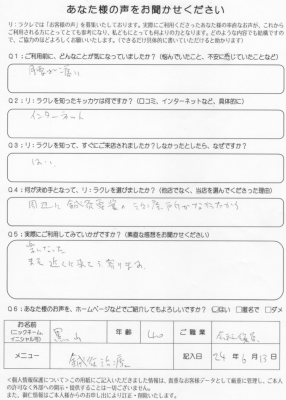 あなた様の声をお聞かせください
リ:ラクレでは「お客様の声」を募集いたしております。実際にご利用くださったあなた様の率直なお声が、これから
ご利用される方にとってとても参考になり、私どもにとっても何よりの力となります。どのような内容でも結構ですの
で、ご協力のほどよろしくお願いいたします。(できるだけ具体的に書いていただけると助かります)
Q1:ご利用前に、どんなことが気になっていましたか?(悩んでいたこと、不安に感じていたことなど)
Q2:リ:ラクレを知ったキッカケは何ですか?(口コミ、インターネットなど、具体的に)
インターネット
Q3:リ:ラクレを知って、すぐにご来店されましたか?しなかったとしたら、なぜですか?
はい
Q4:何が決め手となって、リ:ラクレを選びましたか?(他店でなく、当店を選んでくださった理由)
Q5:実際にご利用してみていかがですか?(素直な感想をお聞かせください)
楽になった
また近くに来たら寄ります。
Q6:あなた様のお声を、ホームページなどでご紹介してもよろしいですか? □はい □匿名で □ダメ
お名前
(ニックネーム、イニシャル可)
年齢
ご職業
メニュー 鍼灸治療 記入日 24年6月13日
<個人情報保護について>この用紙にご記入いただきました情報は、貴重なお客様データとして厳重に管理し、ご本
人の許可なく外部への開示・提供することは一切ございません。
また、御仁情報はご本人様からのお申し出により訂正・削除いたします。